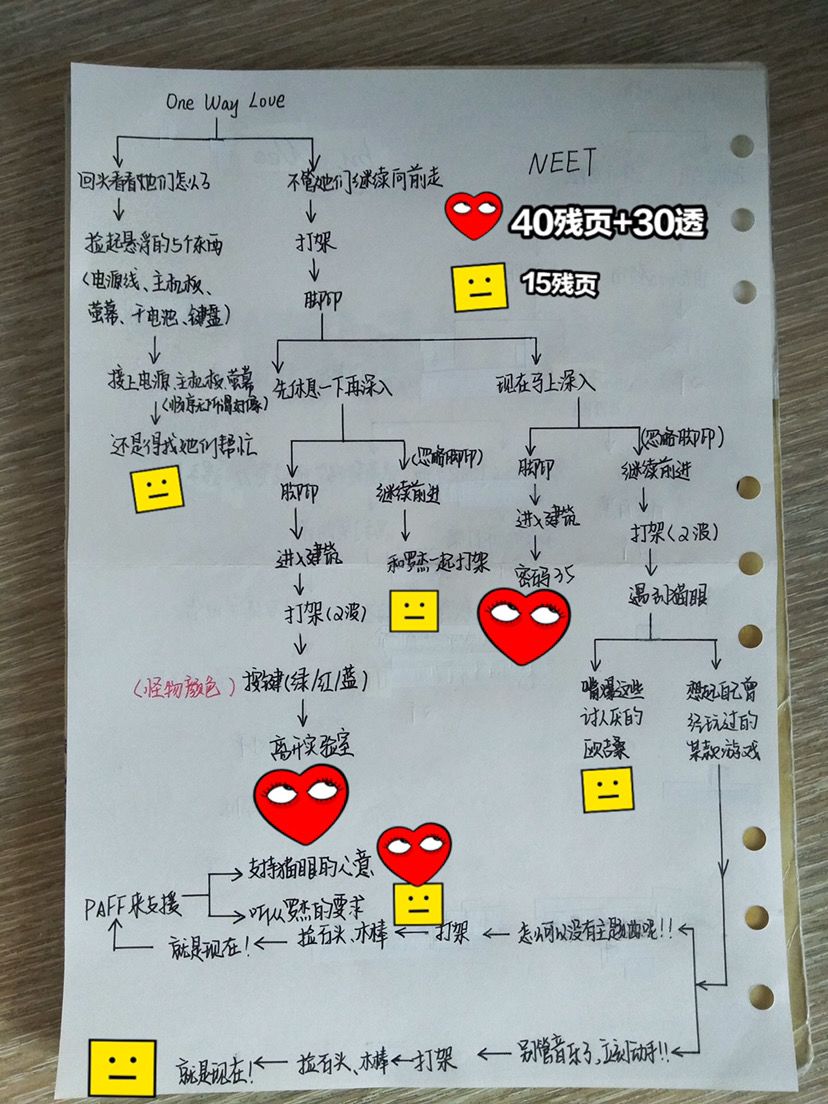 One Way Love
NEET
40残页+30透
15残页
回头看看她们怎么了
不管她们继续向前走
捡起悬浮的5个东西
(电源线、主机板、
萤幕、干电池、键盘)
打架
脚印
接上电源、主机板、萤幕
先休息一下再深入
现在马上深入
还是得找她们帮忙
脚印
(忽略脚印)
继续前进
脚印
(忽略脚印)
继续前进
进入建筑
和罗杰一起打架
进入建筑
打架(2波)
打架(2波)
密码35
遇到猫眼
(怪物颜色)
按键(绿/红/蓝)
嘴爆这些
讨人厌的
欧吉桑
想起自己曾
经玩过的
某款游戏
离开实验室
支持猫眼的心意
PAFF来支援
听从罗杰的要求
就是现在!
捡石头、木棒
打架
怎么可以没有主题曲呢!!
就是现在!
捡石头、木棒
打架
别管音乐了,立刻动手!!